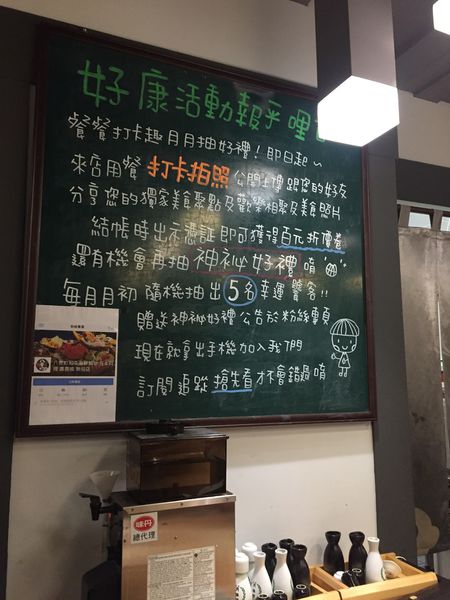 好康活動報乎哩
餐餐打卡趣月月抽好禮！即日起～
來店用餐 打卡拍照 公開上傳 跟您的好友
分享您的獨家美食聚點及歡樂相聚及美食照片
結帳時出示憑証即可獲得百元折價卷
還有機會再抽 神祕好禮 唷
每月月初 隨機抽出 5名 幸運饕客!!
贈送神祕好禮 公告於粉絲專頁
現在就拿出手機加入我們
訂閱追蹤 搶先看 才不會錯過唷
味丹
總代理